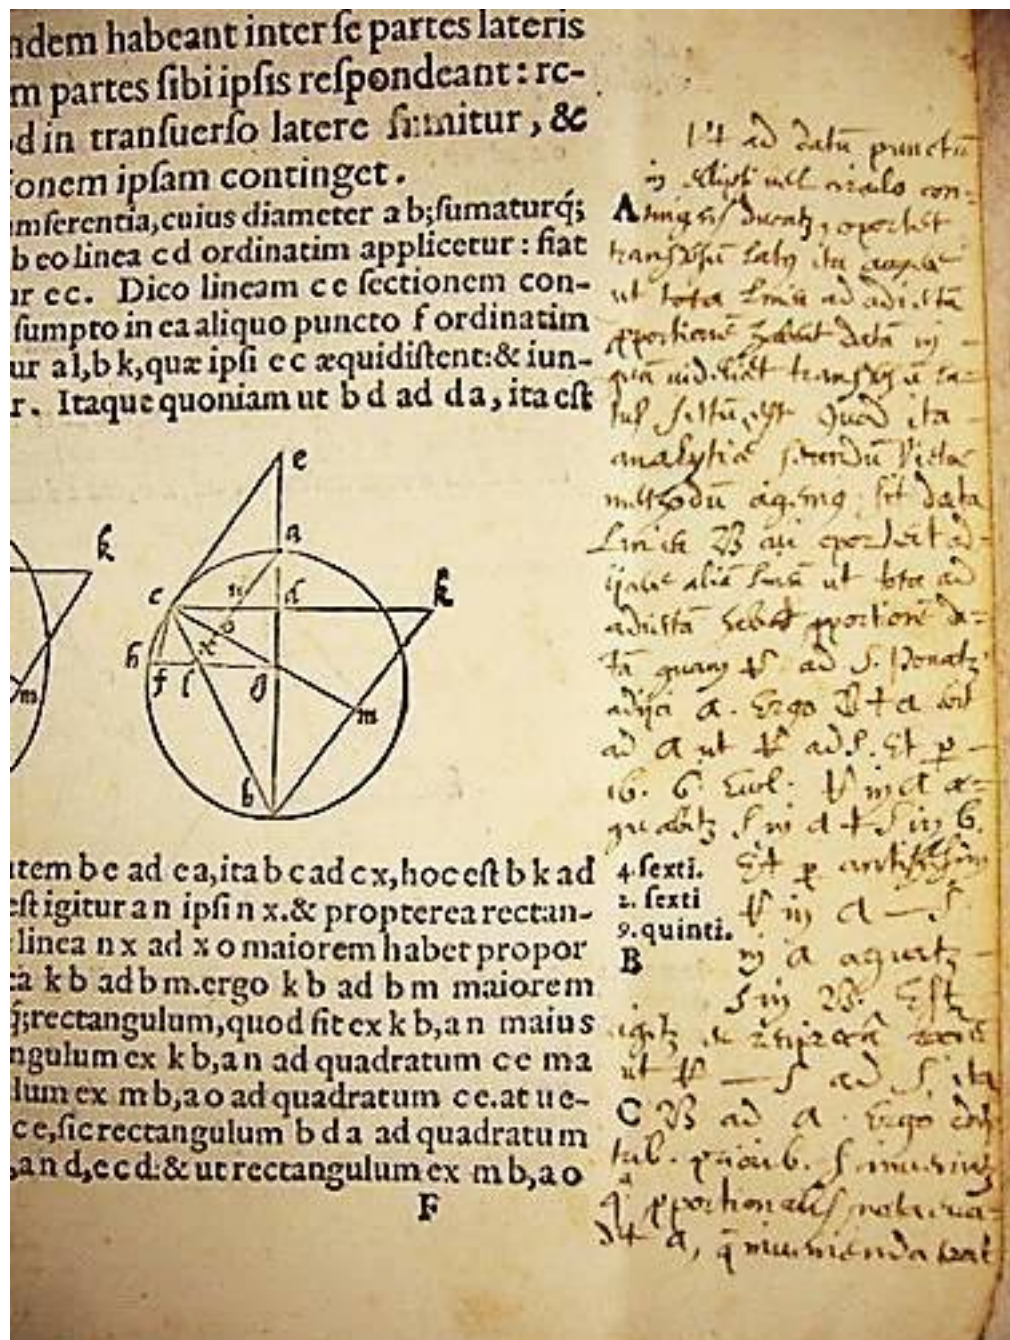 ndem habeant inter ſe partes lateris
m partes ſibi ipſis reſpondeant: re-
d in tranſuerſo latere ſumitur, &
onem ipſam continget.
mferentia, cuius diameter a b; ſumaturq́;
b eo linea c d ordinatim applicetur: fiat
ur e c. Dico lineam c e ſectionem con-
ſumpto in ea aliquo puncto f ordinatim
ur a l, b k, quæ ipſi e c æquidiſtent: & iun-
r. Itaque quoniam ut b d ad d a, ita eſt
e
a
k
n
c
d
k
o
x
h
f
l
g
m
m
b
tem b e ad e a, ita b c ad c x, hoc eſt b k ad
eſt igitur a n ipſi n x. & propterea rectan-
linea n x ad x o maiorem habet propor
ta k b ad b m. ergo k b ad b m maiorem
q́; rectangulum, quod fit ex k b, a n maius
ngulum ex k b, a n ad quadratum c e ma
lum ex m b, a o ad quadratum c e. at ue-
c e, ſic rectangulum b d a ad quadratum
, a n d, e c d: & ut rectangulum ex m b, a o
F
Vt ad datū punctū
in elipſi uel circulo con-
A
tingens ducatz, oportet
tranſuſū latus ita
ut tota linea ad adiectā
pportionē habeat datā in
quā uidelicet tranſuſū la-
tus ſectū eſt. Quod ita
analytice ſecundū Vietae
methodū agemus. ſit data
linea B cui oporteat ad-
ijcere aliā lineā ut tota ad
adiectā habeat pportionē da-
tā quam R ad S. Ponatz
adijci A. Ergo B + A erit
ad A ut R ad S. Et p
16. 6. Eucl. R in A æ-
quabitz S in A + S in B.
4. ſexti.
2. ſexti
9. quinti.
B
Et p antitheſim
R in A — S
in A æquatz
S in B. Eſt
igitz
ut R — S ad S ita
C
B ad A. Ergo
S
pportionalis
A, q̄ inuenienda erat